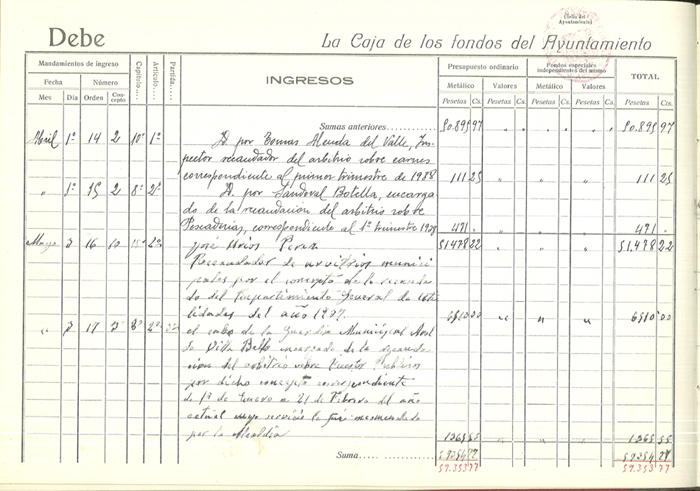 (Sello del Ayuntamiento)
Debe
La Caja de los fondos del Ayuntamiento
Mandamientos de ingreso
Fecha Número
Mes Día Orden Concepto
Capítulo.... Artículo.... Partida....
INGRESOS
Presupuesto ordinario Fondos especiales independientes del mismo TOTAL
Metálico Valores Metálico Valores
Pesetas Cs. Pesetas Cs. Pesetas Cs. Pesetas Cs. Pesetas Cs.
Sumas anteriores 50.895 97 " " " 50.895 97
Abril 1º 14 2 10º 1º
D. por Tomas del Valle, Ins-
pector recaudador del arbitrio sobre carnes
correspondiente al primer trimestre de 1928 111 25 " " " 111 25
" 1º 15 2 8º 2º
D. por Sandoval Botella, encarga
do de la recaudacion del arbitrio sobre
Pescaderias, correspondiente al 1º trimestre 1928 471 " " " 471
Mayo 3 16 10 2º
José Perez 51478 22 " " " 51.478 22
Recaudador de arbitrios munici
pales por el concepto de la recauda
do del Repartimiento General de Uti
lidades del año 1927. 6510 00 " " " 6510 00
" 3 17 3 8º 2º
el cabo de la Guardia Municipal
Villa encargado de la recauda
cion del arbitrio sobre Puestos Publicos
por dicho concepto correspondiente
de 1º de Enero a 21 de Febrero del año
actual cuyo servicio le fué encomendado
por la Alcaldia 1365 55 " " " 1365 55
Suma
59.353 77 59.353 77